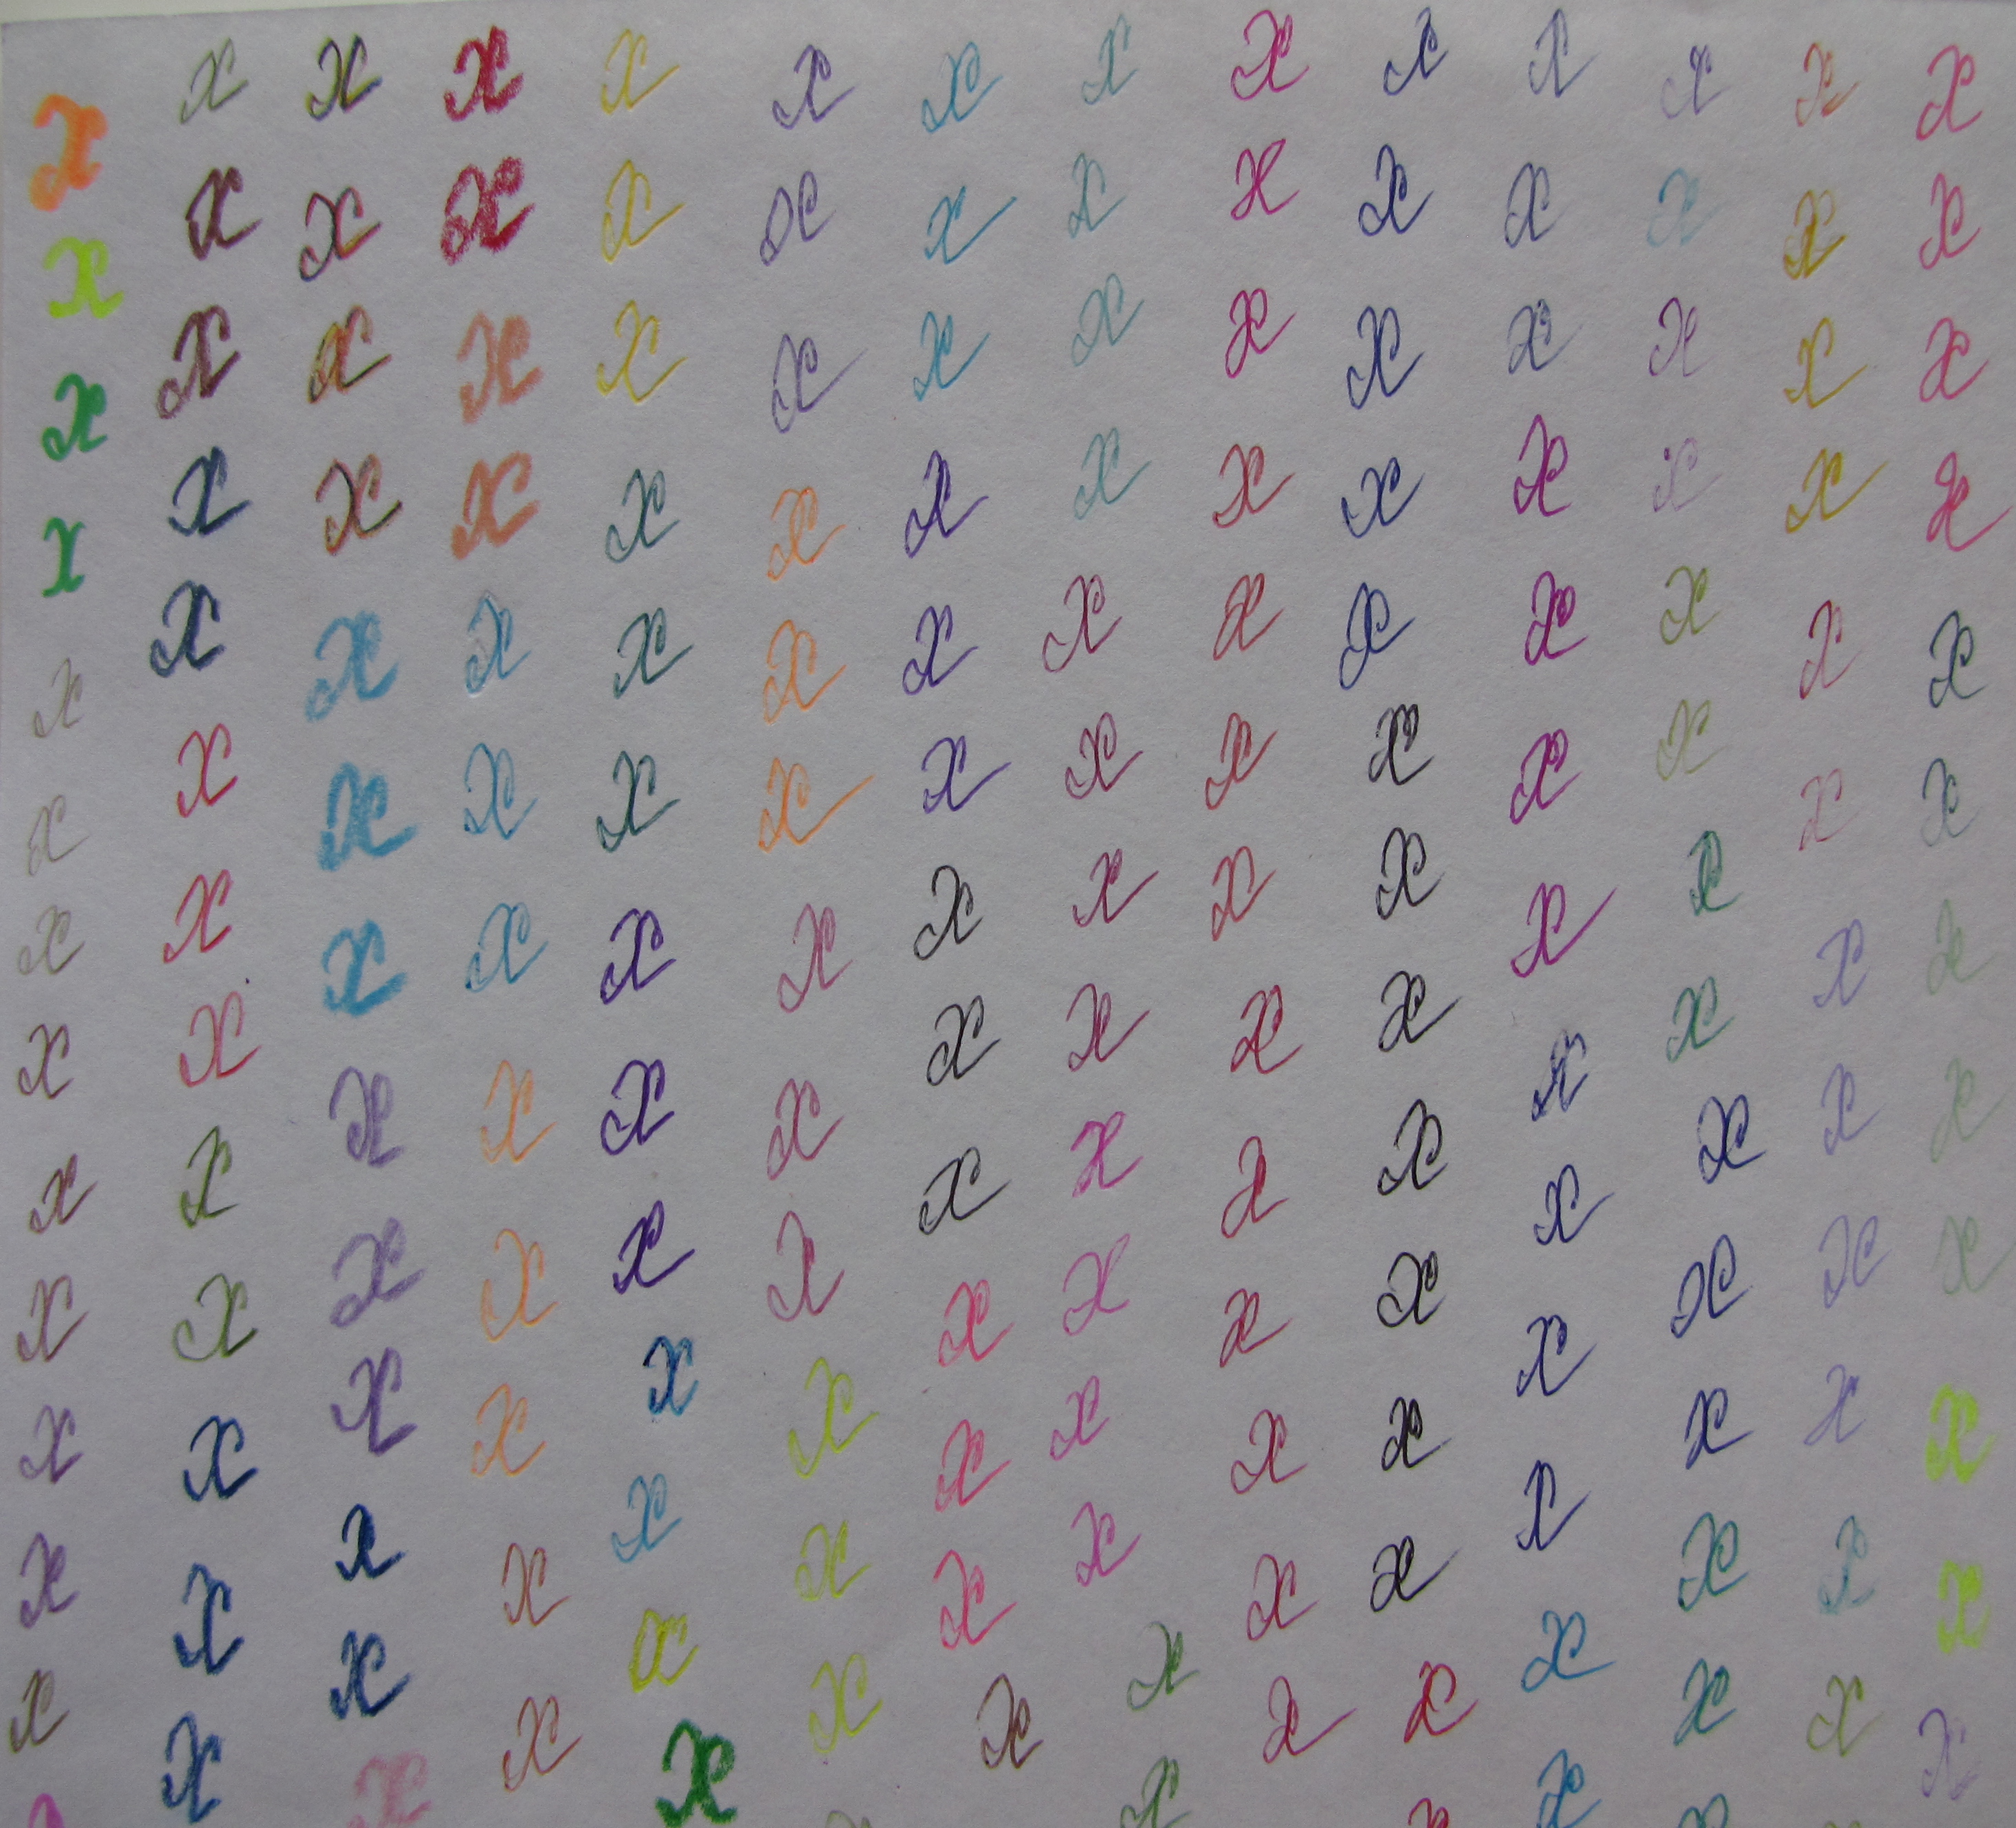 x x x x x x x x x x x x x x
x x x x x x x x x x x x x x
x x x x x x x x x x x x x x
x x x x x x x x x x x x x x
x x x x x x x x x x x x x x
x x x x x x x x x x x x x x
x x x x x x x x x x x x x x
x x x x x x x x x x x x x x
x x x x x x x x x x x x x x
x x x x x x x x x x x x x x
x x x x x x x x x x x x x x
x x x x x x x x x x x x x x
x x x x x x x x x x
x